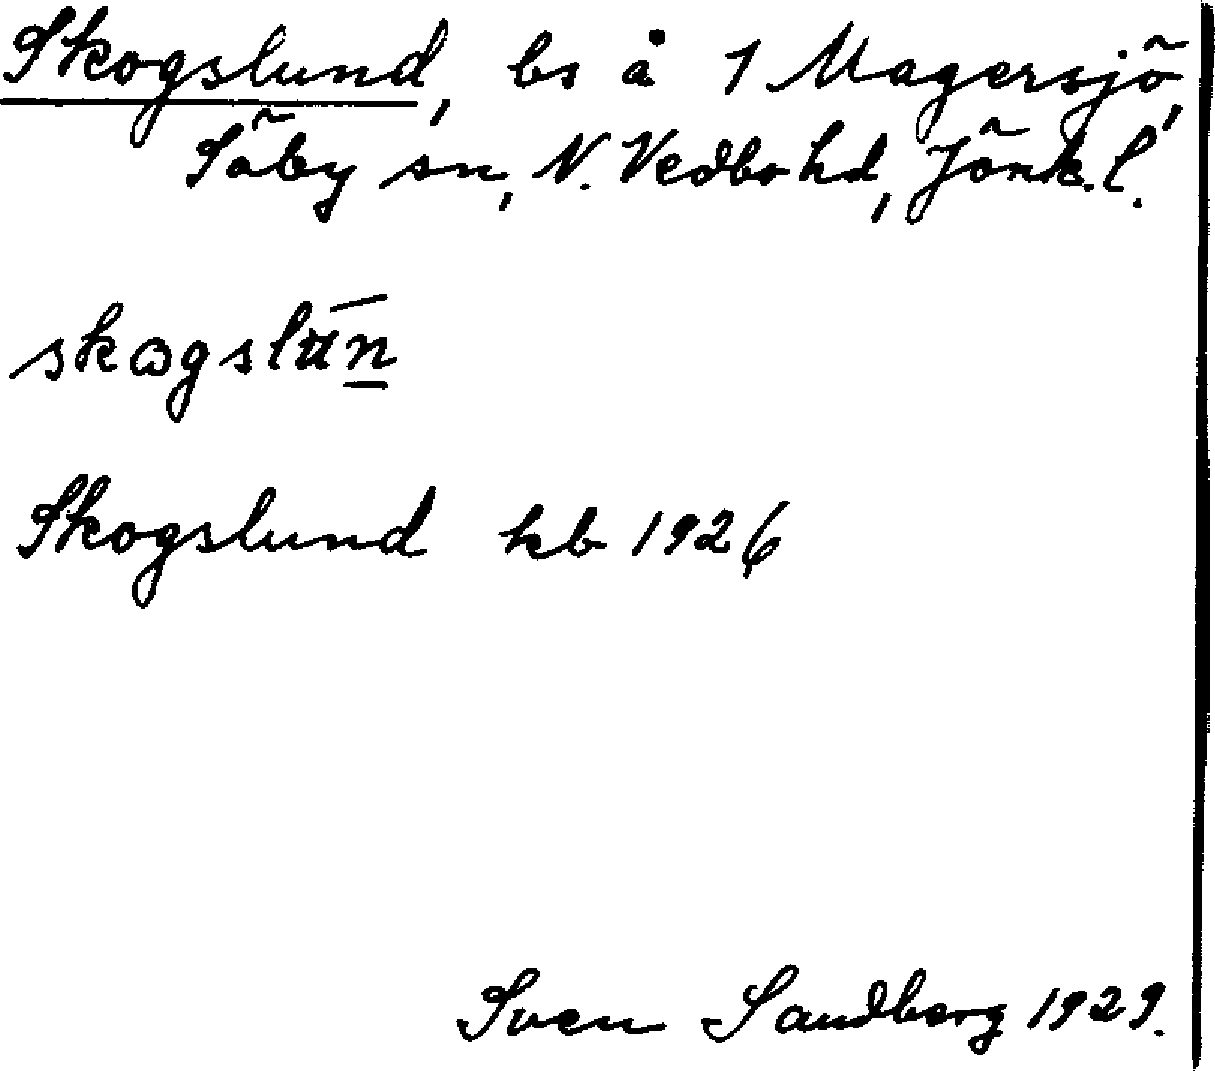 Skogslund, bs å 1 Magersjö,
Säby sn, N. Vedbo hd, Jönk. l.
skogslun
Skogslund kb 1926
Sven Sandberg 1929.